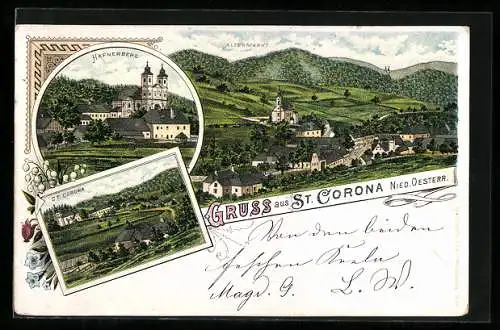 HAFNERBERG
ALTENMARKT
ST. CORONA
GRUSS aus ST. CORONA NIED. OESTERR.
Von den beiden
feschen
Magd. G. L. W.